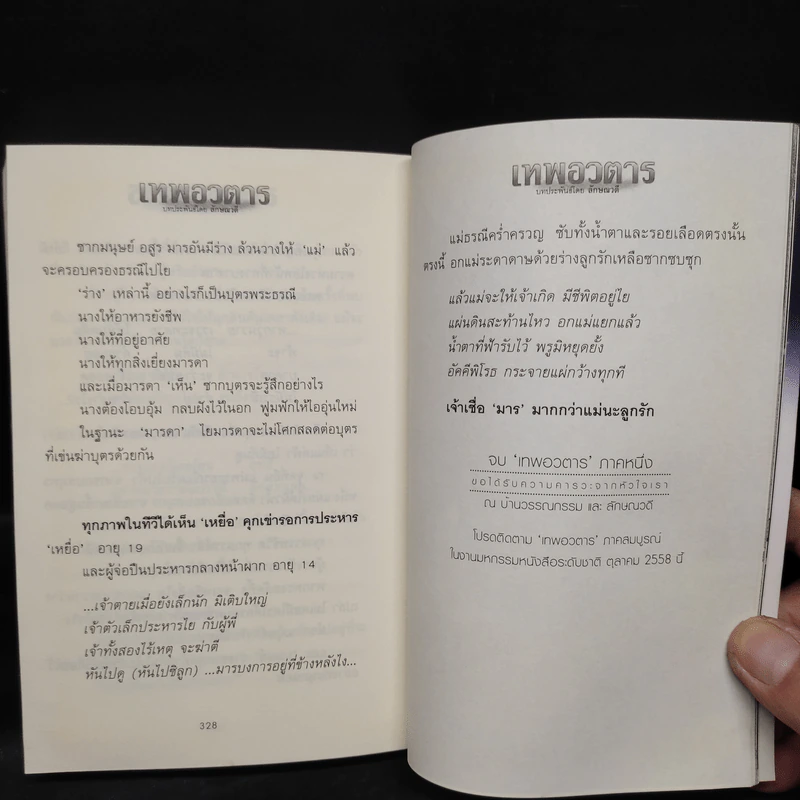 เทพอวตาร
บทประพันธ์โดย ลักษณวดี
ซากมนุษย์ อสูร มารอันมีร่าง ล้วนวางให้ ‘แม่’ แล้ว
จะครอบครองธรณีไปไย
‘ร่าง’ เหล่านี้ อย่างไรก็เป็นบุตรพระธรณี
นางให้อาหารยังชีพ
นางให้ที่อยู่อาศัย
นางให้ทุกสิ่งเยี่ยงมารดา
และเมื่อมารดา ‘เห็น’ ซากบุตรจะรู้สึกอย่างไร
นางต้องโอบอุ้ม กลบฝังไว้ในอก ฟูมฟักให้ไออุ่นใหม่
ในฐานะ ‘มารดา’ ไยมารดาจะไม่โศกสลดต่อบุตร
ที่เข่นฆ่าบุตรด้วยกัน
ทุกภาพในทีวีได้เห็น ‘เหยื่อ’ คุกเข่ารอการประหาร
‘เหยื่อ’ อายุ 19
และผู้จ่อปืนประหารกลางหน้าผาก อายุ 14
...เจ้าตายเมื่อยังเล็กนัก มิเติบใหญ่
เจ้าตัวเล็กประหารไย กับผู้พี่
เจ้าทั้งสองไร้เหตุ จะฆ่าตี
หันไปดู (หันไปซิลูก) ...มารบงการอยู่ที่ข้างหลังไง...
328
เทพอวตาร
บทประพันธ์โดย ลักษณวดี
แม่ธรณีคร่ำครวญ ซับทั้งน้ำตาและรอยเลือดตรงนั้น
ตรงนี้ อกแม่ระดาดาษด้วยร่างลูกรักเหลือซากซบซุก
แล้วแม่จะให้เจ้าเกิด มีชีพอยู่ไย
แผ่นดินสะท้านไหว อกแม่แยกแล้ว
น้ำตาที่ฟ้ารับไว้ พรูมิหยุดยั้ง
อัคคีพิโรธ กระจายแผ่กว้างทุกที
เจ้าเชื่อ ‘มาร’ มากกว่าแม่นะลูกรัก
จบ ‘เทพอวตาร’ ภาคหนึ่ง
ขอได้รับความคารวะจากหัวใจเรา
ณ บ้านวรรณกรรม และ ลักษณวดี
โปรดติดตาม ‘เทพอวตาร’ ภาคสมบูรณ์
ในงานมหกรรมหนังสือระดับชาติ ตุลาคม 2558 นี้